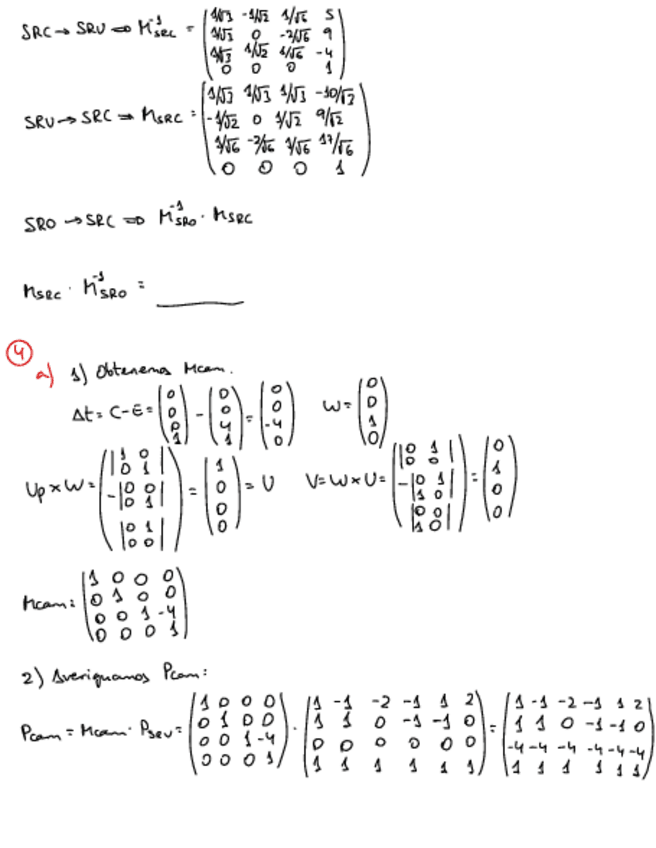 SRC → SRU ⇒ M⁻¹SRC = (1/√3 -1/√2 1/√6 5
1/√3 0 -2/√6 9
1/√3 1/√2 1/√6 -4
0 0 0 1)
SRU → SRC ⇒ MSRC = (1/√3 1/√3 1/√3 -10/√2
-1/√2 0 1/√2 9/√2
1/√6 -2/√6 1/√6 17/√6
0 0 0 1)
SRO → SRC ⇒ M⁻¹SRO · MSRC
MSRC · M⁻¹SRO = ______
4
a) 1) Obtenemos Mcam.
Δt = C-E = (0 0 0 1) - (0 0 4 1) = (0 0 -4 0) W = (0 0 1 0)
Up x W = (|1 0 0 1| -|0 0 0 1| |0 1 0 0|) = (1 0 0 0) = U V = W x U = (|0 1 0 0| -|0 1 1 0| |0 0 1 0|) = (0 1 0 0)
Mcam = (1 0 0 0
0 1 0 0
0 0 1 -4
0 0 0 1)
2) Averiguamos Pcam:
Pcam = Mcam · PSRU = (1 0 0 0 · (1 -1 -2 -1 1 2 = (1 -1 -2 -1 1 2
0 1 0 0 1 1 0 -1 -1 0 1 1 0 -1 -1 0
0 0 1 -4 0 0 0 0 0 0 -4 -4 -4 -4 -4 -4
0 0 0 1) 1 1 1 1 1 1) 1 1 1 1 1 1)